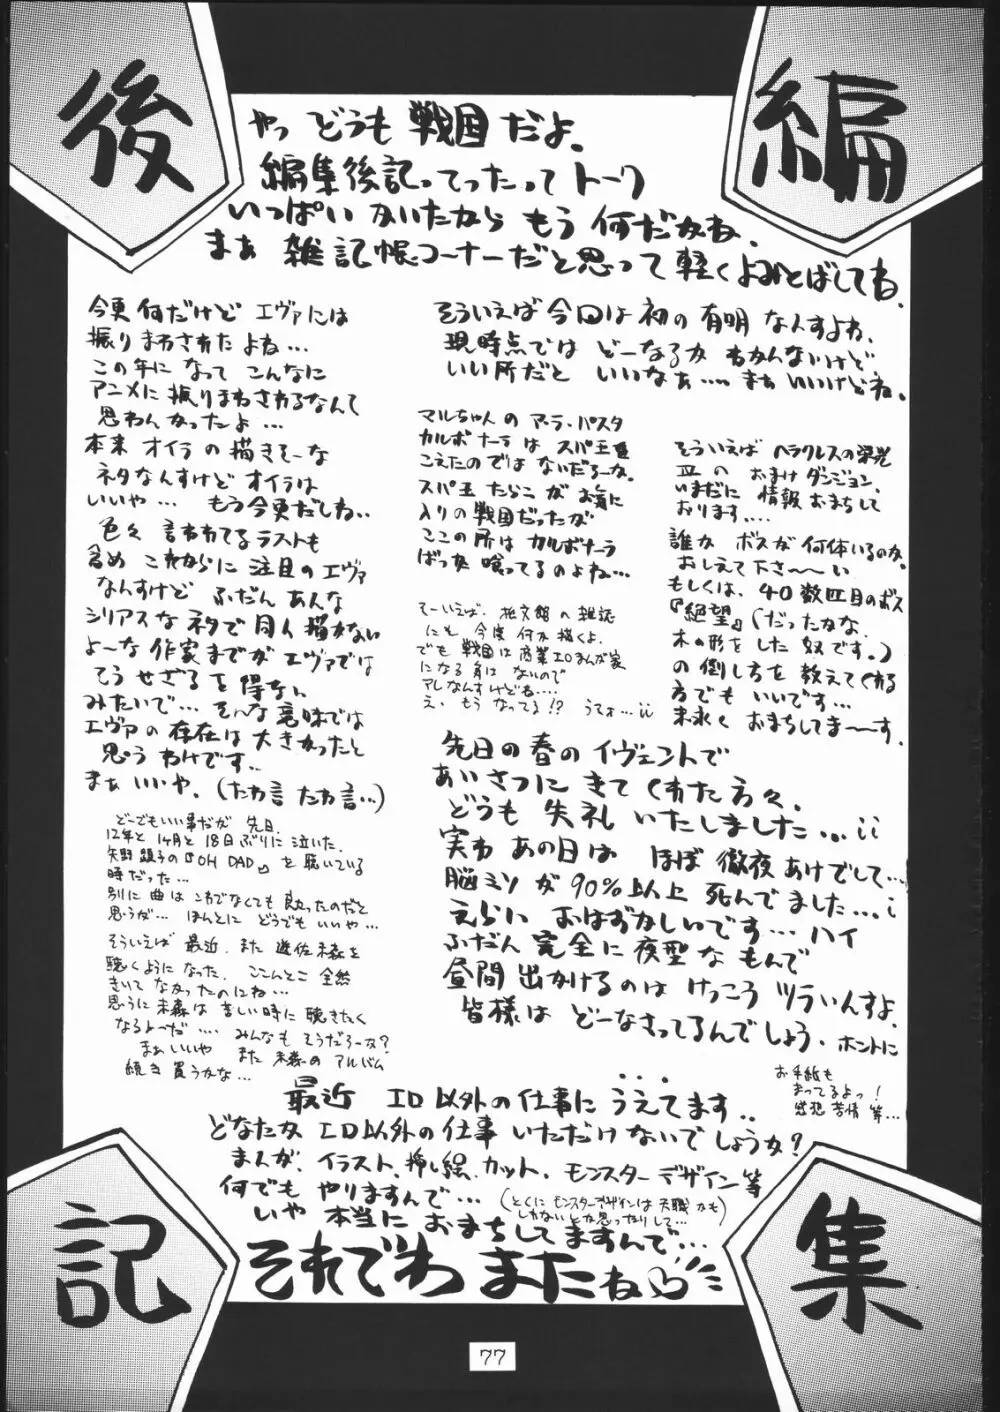 編
集
後
記
やっ どうも 戦国 だよ。
編集後記ってったって トーク
いっぱい かいたから もう 何だかね、
まぁ 雑記帳コーナーだと思って 軽く よみとばしてね。
今更 何だけど エヴァには
振りまわされた よね…
この年に なって こんなに
アニメに 振りまわされるなんて
思わんかったよ…
本来 オイラの 描きそーな
ネタなんすけど オイラは
いいや… もう今更だしね‥
色々 言われてるラストも
含め これからに 注目の エヴァ
なんすけど ふだん あんな
シリアスな ネタで 同人 描かない
よーな 作家までが エヴァでは
そう せざる を 得ない
みたいで… そんな 意味では
エヴァの 存在は 大きかったと
思う わけです‥
まぁ いいや、(たわ言 たわ言…)
どーでもいい事だが 先日、
12年と 1ヶ月と 18日ぶりに 泣いた、
矢野顕子の『OH DAD』を 聴いている
時だった…
別に 曲は これでなくても 良かったのだと
思うが… ほんとに どうでも いいや…
そういえば 最近、また 遊佐未森を
聴くようになった、ここんとこ 全然
きいて なかったのにね…
思うに 未森は 苦しい時に 聴きたく
なるよーだ…. みんなも そうだろーか?
まぁいいや また 未森の アルバム
続き 買うかな…
そういえば 今回は 初の 有明 なんすよね、
現時点では どーなるか わかんないけど
いい所だと いいなぁ…. まぁ いいけどね。
マルちゃんの アーラ・パスタ
カルボナーラ は スパ王を
こえたの では ないだろーか。
スパ王 たらこ が お気に
入りの 戦国だったが
ここの 所は カルボナーラ
ばっか 喰ってるのよね…
そーいえば、桃文館の雑誌
にも 今度 何か 描くよ、
でも 戦国は 商業エロまんが家
になる 身は ないので
アレなんすけどね….
え、もう なってる!? うそぉ…ii
そういえば ヘラクレスの栄光
Ⅲ の おまけ ダンジョン、
いまだに 情報 おまちして
おります….
誰か ボスが 何体いるのか、
おしえて 下さ〜〜い
もしくは、40数匹目のボス
『絶望』(だったかな、
木の形をした 奴です。)
の 倒し方を 教えてくれる
方でも いいです…
末永く おまちしてま〜〜す。
先日の 春の イヴェントで
あいさつに きて くれた 方々、
どうも 失礼 いたしました…ii
実わ あの日は ほぼ 徹夜 あけでして…
脳ミソ が 90%以上 死んでました…i
えらい おはずかしいです… ハイ
ふだん 完全に 夜型な もんで
昼間 出かけるのは けっこう ツラいんすよ、
皆様は どーなさってるんでしょう、ホントに
お手紙も
まってるよっ!
感想 苦情 等…
最近 エロ以外の仕事に うえてます‥
どなたか エロ以外の仕事 いただけないでしょうか?
まんが、イラスト、挿し絵、カット、モンスターデザイン等
何でも やりますんで…
(とくに モンスターデザインは 天職 かも
しれない とか思ったりして…)
いや 本当に おまちしてますんで…
それでわ またね
77